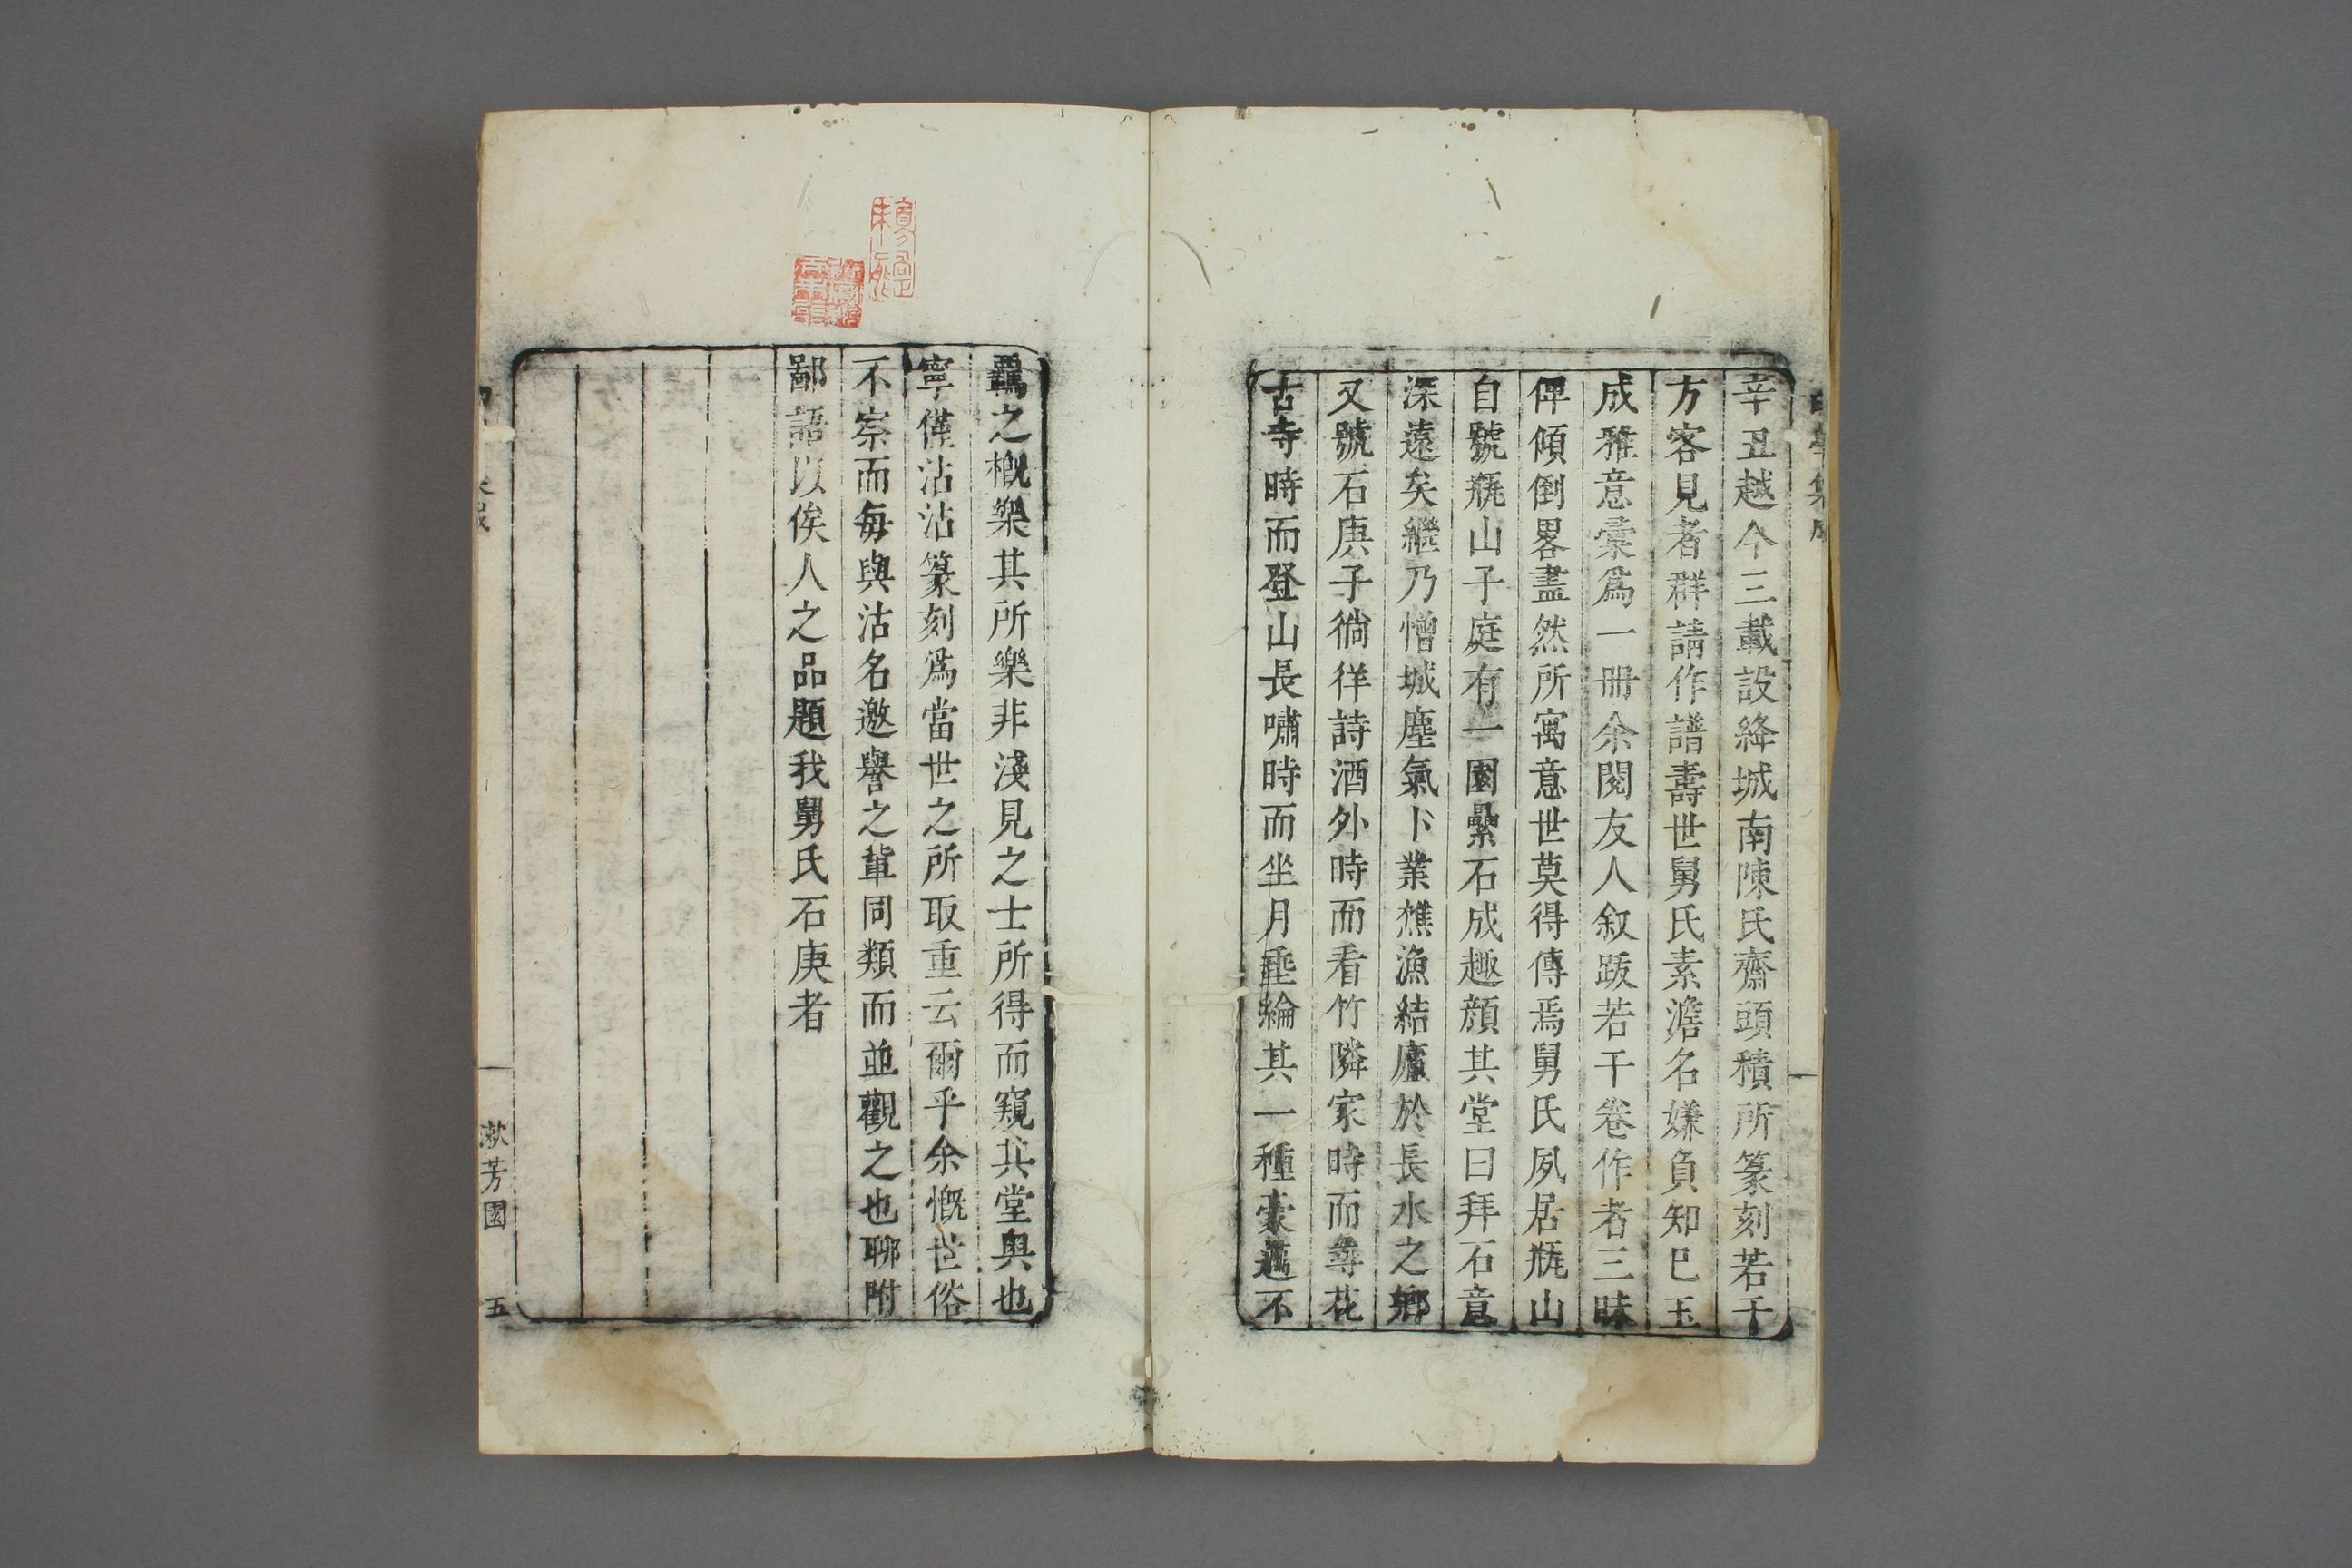 辛丑越今三載設絳城南陳氏齋頭積所篆刻若干
方客見者群請作譜壽世舅氏素澹名嫌負知巳玉
成雅意彙爲一冊余閱友人叙跋若干卷作者三昧
俾傾倒畧盡然所寓意世莫得傳焉舅氏夙居瓶山
自號瓶山子庭有一園纍石成趣顔其堂曰拜石意
深遠矣繼乃憎城塵氣卜業樵漁結廬於長水之鄉
又號石庚子徜徉詩酒外時而看竹隣家時而尋花
古寺時而登山長嘯時而坐月垂綸其一種豪邁不
羈之槪樂其所樂非淺見之士所得而窺其堂奥也
寧僅沾沾篆刻爲當世之所取重云爾乎余慨世俗
不察而每與沽名邀譽之輩同類而並觀之也聊附
鄙語以俟人之品題我舅氏石庚者
漱芳園
五